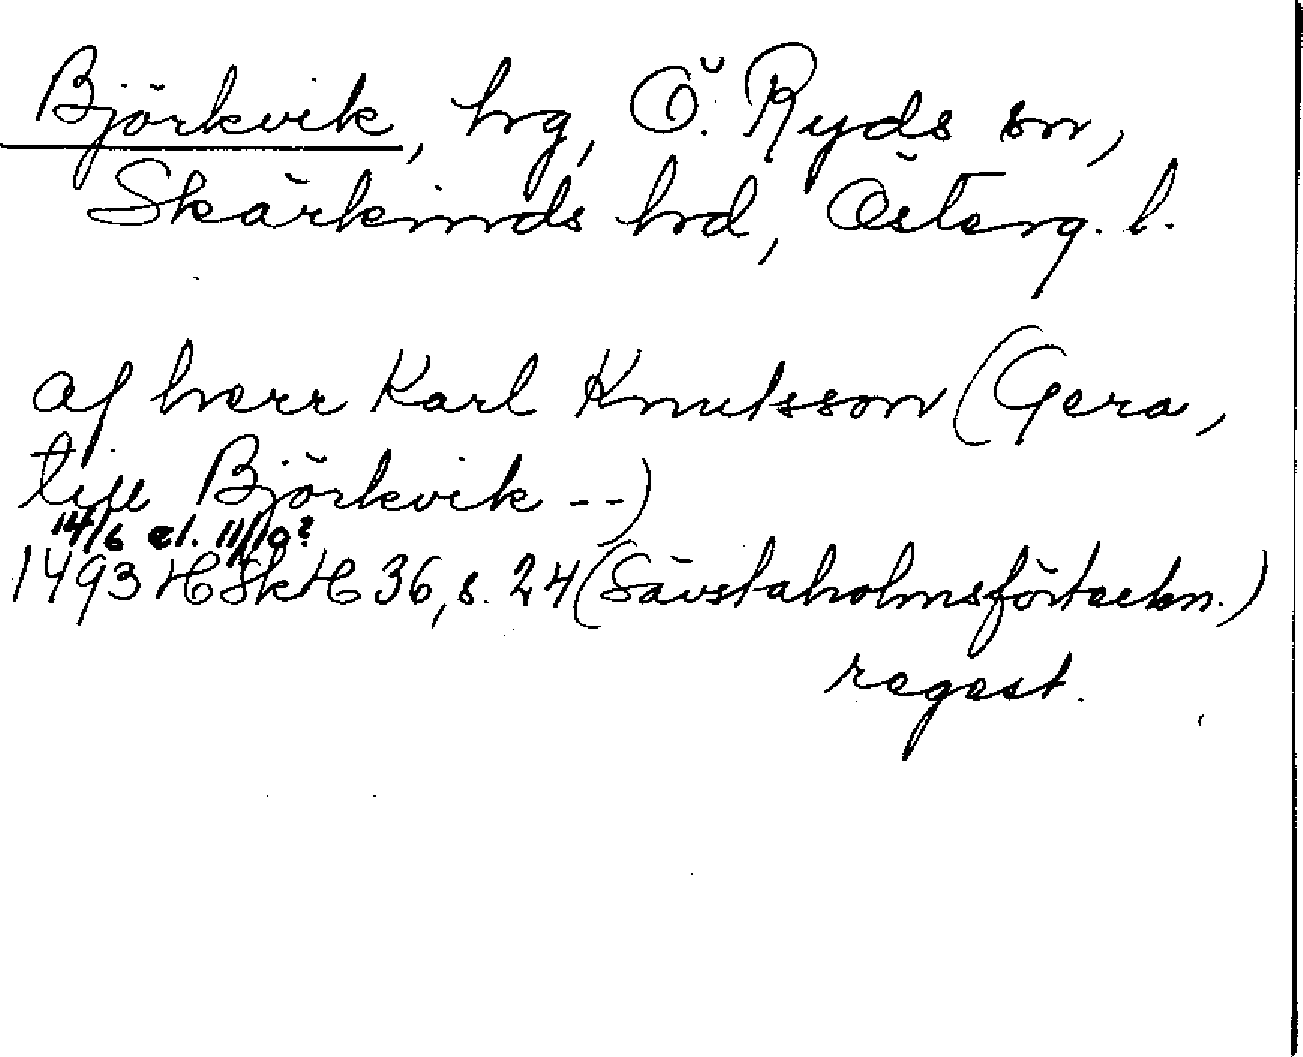 Björkvik, hg, Ö. Ryds sn,
Skärkinds hd, Österg. l.
af herr Karl Knutsson (Gera,
till Björkvik --)
14/6 el. 11/10?
1493 HSkH 36, s. 24 (Sävstaholmsförteckn.)
regest.